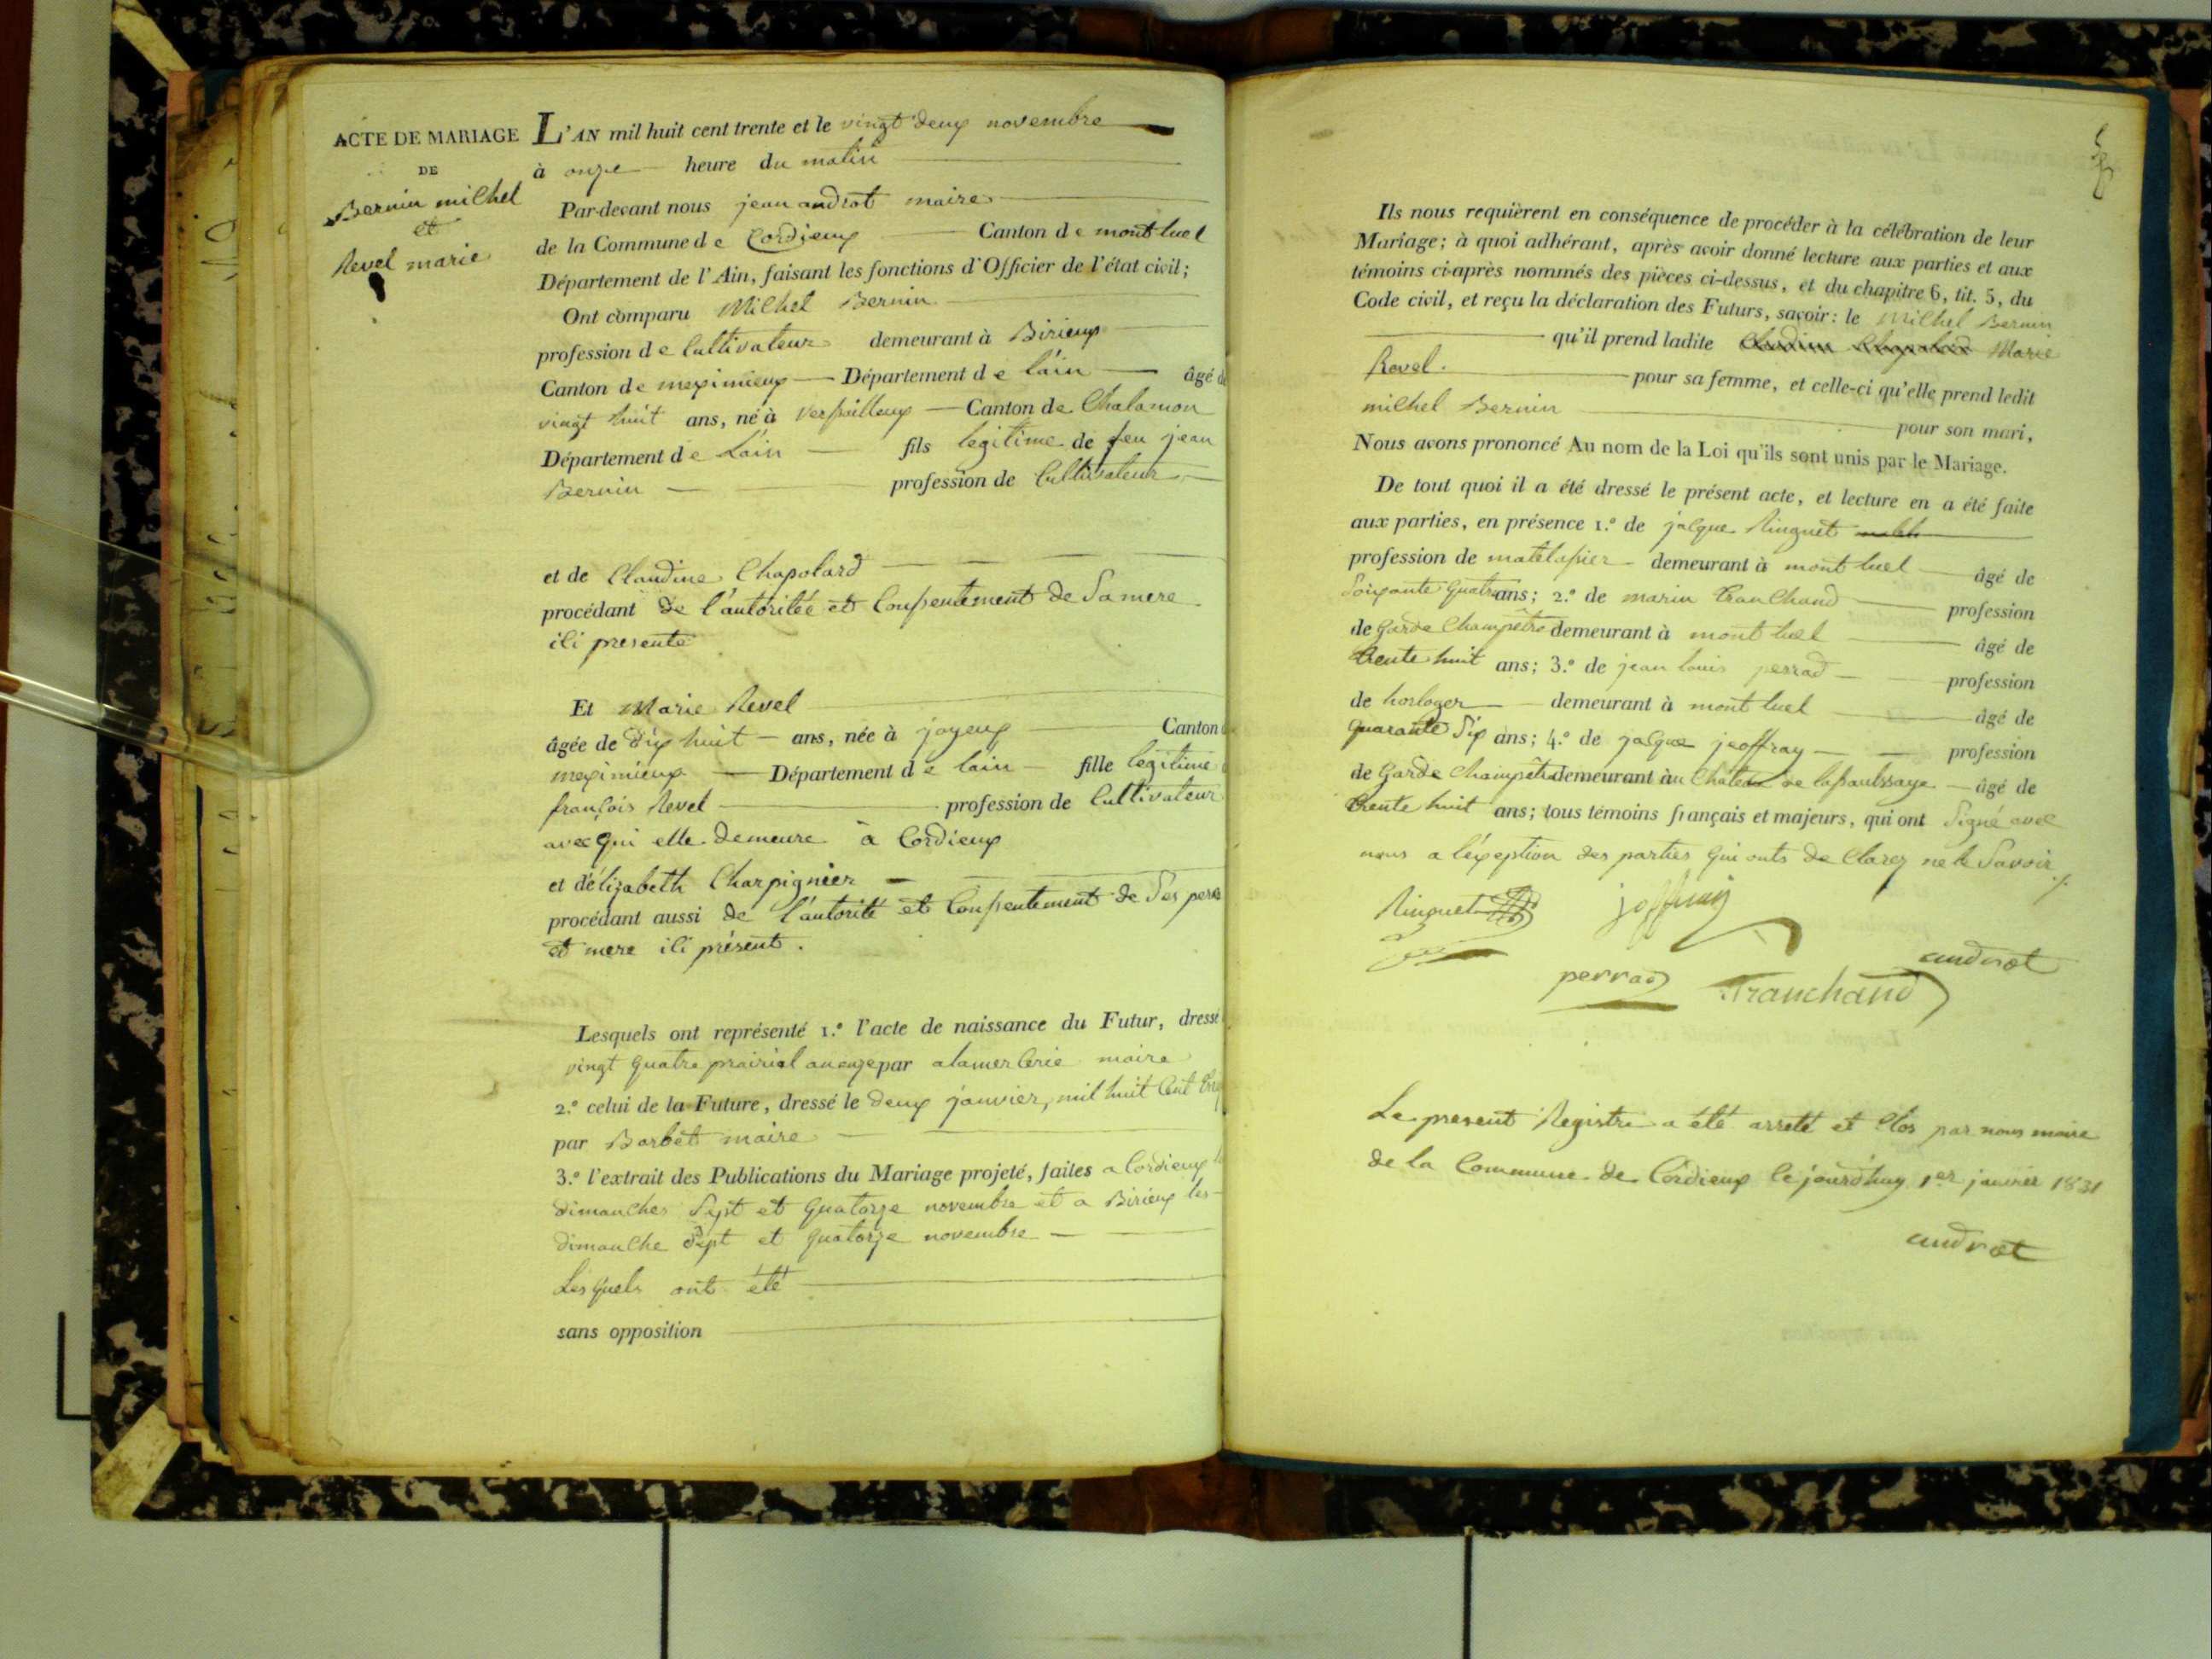 ACTE DE MARIAGE
DE
Bernin michel
et
Revel marie
L'AN mil huit cent trente et le vingt deux novembre
à onze heure du matin
Par-devant nous jean androt maire
de la Commune de Cordieux Canton de montluel
Département de l'Ain, faisant les fonctions d'Officier de l'état civil;
Ont comparu Michel Bernin
profession de Cultivateur demeurant à Birieux
Canton de meximieux Département de l'ain âgé de
vingt huit ans, né à Versailleux Canton de Chalamon
Département de L'ain fils legitime de feu jean
Bernin profession de Cultivateur
et de Claudine Chapolard
procédant de l'autoritée et Consentement de Sa mere
ici presente
Et Marie Revel
âgée de dix huit ans, née à joyeux Canton
meximieux Département de l'ain fille legitime
françois Revel profession de Cultivateur
avec qui elle demeure à Cordieux
et d'élizabeth Charpignier
procédant aussi de l'autorité et Consentement de Ses pere
et mere ici présent.
Lesquels ont représenté 1.º l'acte de naissance du Futur, dressé
vingt quatre prairial an onze par alamercerie maire
2.º celui de la Future, dressé le deux janvier, mil huit Cent
par Barbet maire
3.º l'extrait des Publications du Mariage projeté, faites a Cordieux
dimanches Sept et Quatorze novembre et a Birieux les
dimanche Sept et Quatorze novembre
Lesquels ont été
sans opposition
Ils nous requièrent en conséquence de procéder à la célébration de leur
Mariage; à quoi adhérant, après avoir donné lecture aux parties et aux
témoins ci-après nommés des pièces ci-dessus, et du chapitre 6, tit. 5, du
Code civil, et reçu la déclaration des Futurs, savoir: le Michel Bernin
qu'il prend ladite Claudine Chapolard Marie
Revel. pour sa femme, et celle-ci qu'elle prend ledit
michel Bernin pour son mari,
Nous avons prononcé Au nom de la Loi qu'ils sont unis par le Mariage.
De tout quoi il a été dressé le présent acte, et lecture en a été faite
aux parties, en présence 1.º de jacque Ringuet
profession de matelassier demeurant à mont luel âgé de
Soixante Quatre ans; 2.º de marin tranchand profession
de Garde Champêtre demeurant à mont luel âgé de
trente huit ans; 3.º de jean louis perrad profession
de horloger demeurant à mont luel âgé de
Quarante Six ans; 4.º de jacque jeoffray profession
de Garde Champêtre demeurant à au Château de la saulssaye âgé de
trente huit ans; tous témoins français et majeurs, qui ont Signé avec
nous a l'exception des parties Qui onts de Clarez ne le Savoir
Ringuet joffray
androt
perrad Tranchand
Le present Registre a été arreté et Clos par nous maire
de la Commune de Cordieux Ce jourd'huy 1er janvier 1831
androt